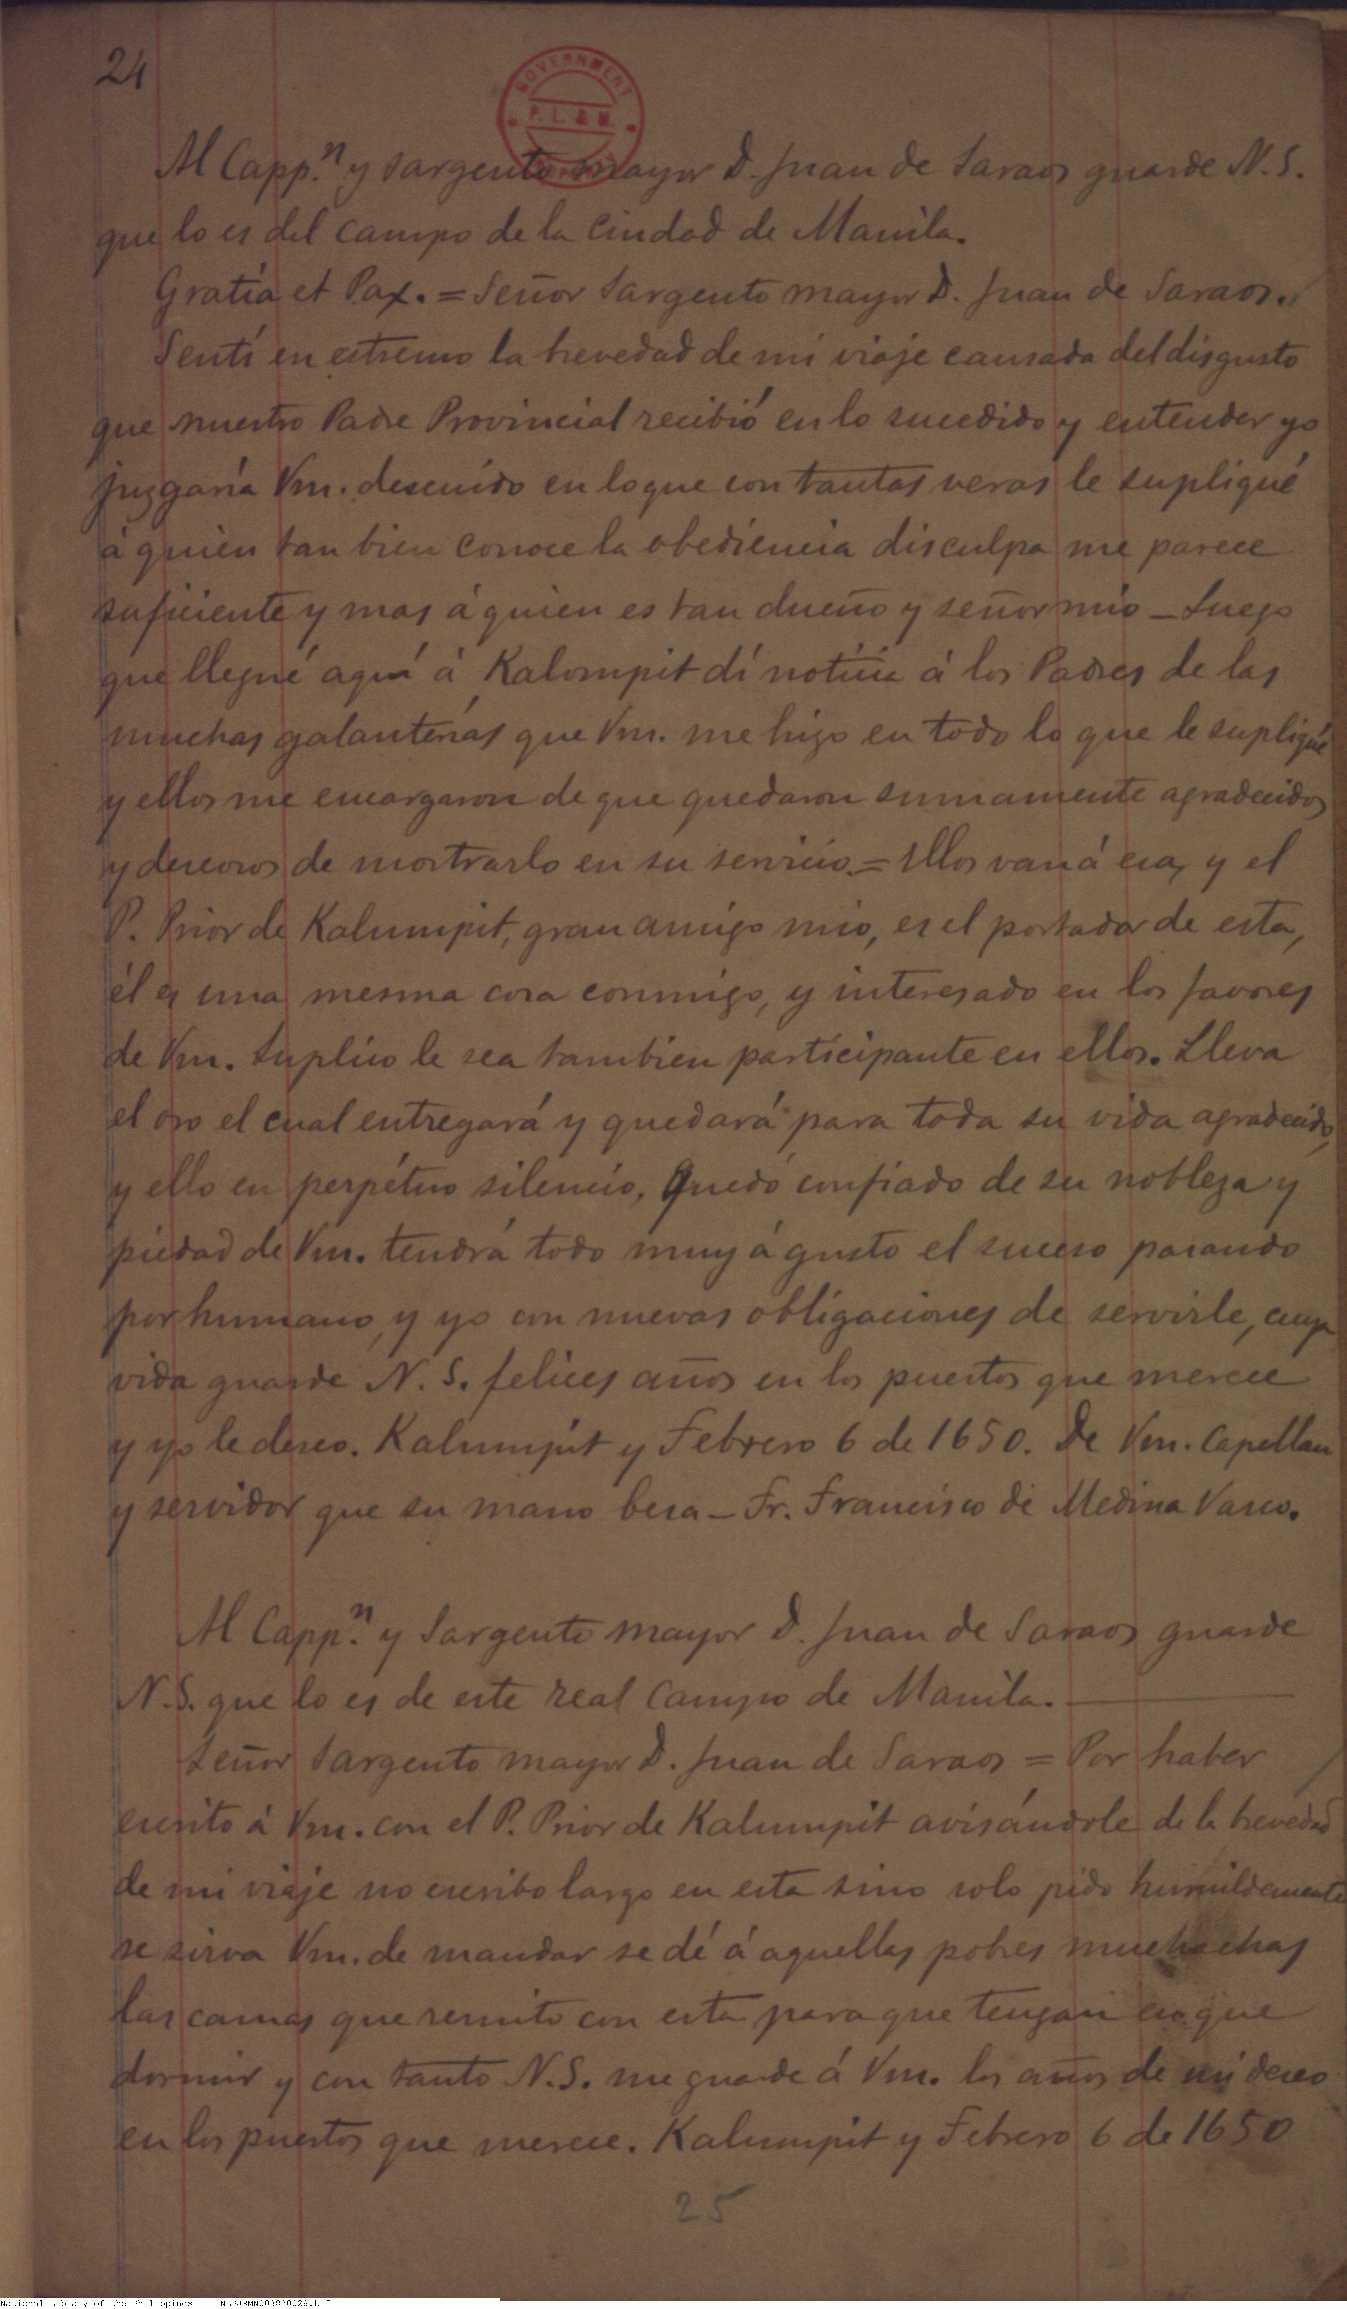 24
GOVERNMENT
P. L. & M.
Al Capp.n y sargento mayor D. Juan de Saraos guarde N. S.
que lo es del campo de la Ciudad de Manila.
Gratia et Pax. = Señor Sargento mayor D. Juan de Saraos.
Sentí en estremo la brevedad de mi viaje causada del disgusto
que nuestro Padre Provincial recibió en lo sucedido y entender yo
juzgaría Vm. descuido en lo que con tantas veras le supliqué
á quien tan bien conoce la obediencia disculpa me parece
suficiente y mas á quien es tan dueño y señor mio _ Luego
que llegué aquí á Kalompit dí noticia á los Padres de las
muchas galanterías que Vm. me hizo en todo lo que le supliqué
y ellos me encargaron de que quedaron sumamente agradecidos
y deseosos de mostrarlo en su servicio. = Ellos van á esa, y el
P. Prior de Kalumpit, gran amigo mio, es el portador de esta,
él es una mesma cosa conmigo, y interesado en los favores
de Vm. Suplico le sea tambien participante en ellos. Lleva
el oro el cual entregará y quedará para toda su vida agradecido,
y ello en perpétuo silencio. Quedo confiado de su nobleza y
piedad de Vm. tendrá todo muy á gusto el suceso pasando
por humano, y yo con nuevas obligaciones de servirle, cuya
vida guarde N. S. felices años en los puestos que merece
y yo le deseo. Kalumpit y Febrero 6 de 1650. De Vm. Capellan
y servidor que su mano besa _ Fr. Francisco de Medina Vasco.
Al Capp.n y Sargento mayor D. Juan de Saraos guarde
N. S. que lo es de este real campo de Manila.
Señor Sargento mayor D. Juan de Saraos = Por haber
escrito á Vm. con el P. Prior de Kalumpit avisándole de la brevedad
de mi viaje no escribo largo en esta sino solo pido humildemente
se sirva Vm. de mandar se dé á aquellas pobres muchachas
las camas que remito con esta para que tengan en que
dormir y con tanto N. S. me guarde á Vm. los años de mi deseo
en los puestos que merece. Kalumpit y Febrero 6 de 1650
25
National Library of the Philippines